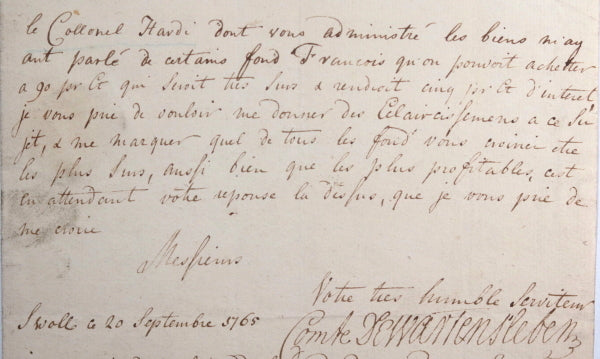 le Collonel Hardi dont vous administré les biens m'ay
ant parlé de certains fond Francois qu'on pouvoit achetter
a 90 pr Ct qui seroit tres surs & rendroit cinq pr Ct d'interet
je vous prie de vouloir me donner des Eclaircissemens a ce Su
jét, & me marquer quel de tous les fond vous croirié etre
les plus surs, aussi bien que les plus profitables, cest
en attendant votre reponse la dessus, que je vous prie de
me croire
Messieurs
Votre tres humble Serviteur
Swoll ce 20 Septembre 1765
Comte De Wartensleben